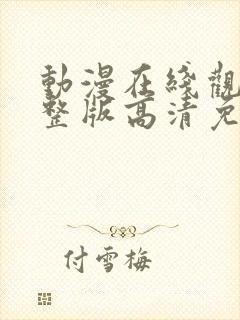 動漫在綫觀
整版高清免
付雪梅